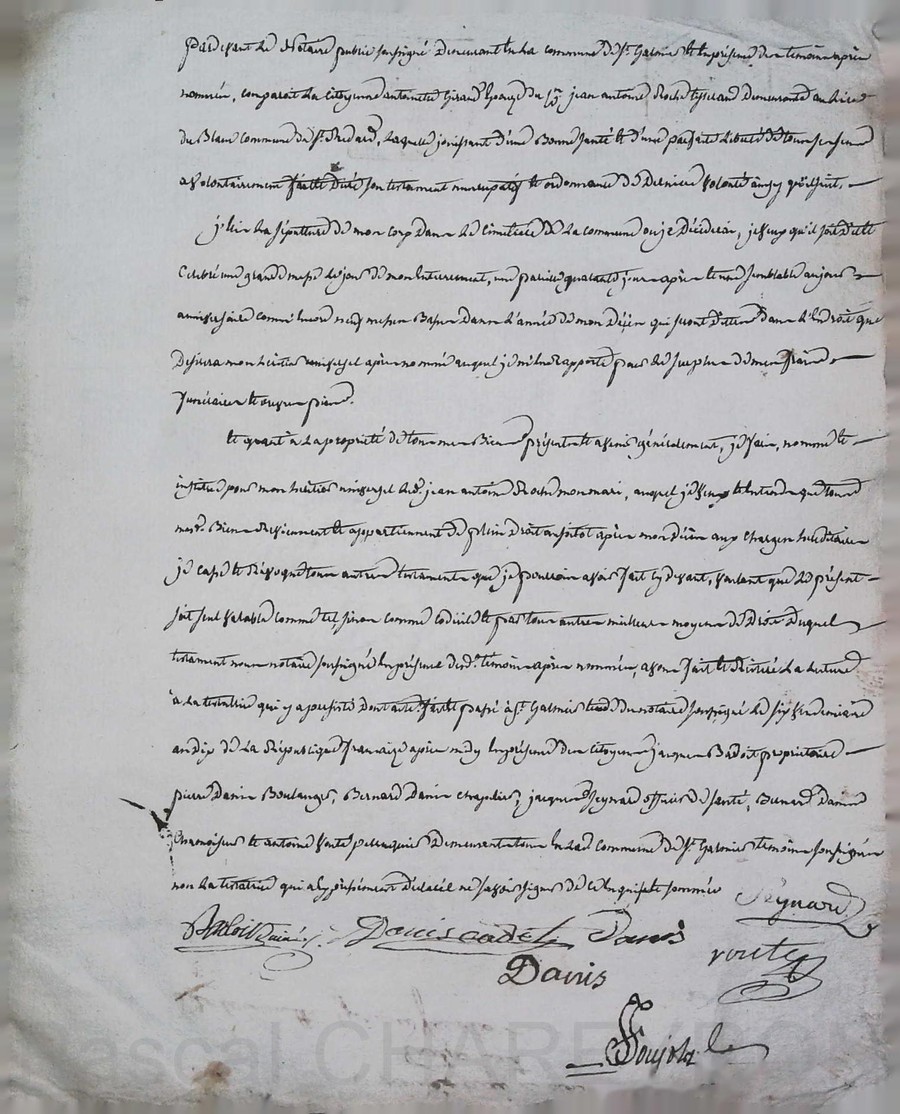 Pardevant le Notaire public soussigné Demeurant en la commune de St. Galmier et en présence des témoins après
nommés, comparait la citoyenne antoinette Girard Epouze du Cn. jean antoine Roche tisserand Demeurante au lieu
du Blanc commune de St. Medard, laquelle jouissant d'une Bonne santé et d'une parfaite liberté de tous ses sens
a volontairement fait et dicté son testament nuncupatif et ordonnance de Derniere volonté ainsy qu'il suit,
j'Elis la sépulture de mon corps dans le Cimetiere de la commune ou je Décéderai, je veux qu'il soit dit et
Celebré une grande messe le jour de mon Enterrement, une pareille quarante jours après et une semblable au jour
anniversaire comme Encore neuf messes Basses dans l'année de mon Décès qui seront dittes dans l'Endroit que
Desirera mon heritier universel après nommé auquel je m'En rapporte pour le surplus de mes frais
funéraires et œuvres pies.
et quant à la propriété de tous mes Biens présents et avenir généralement, je fais, nomme et
institue pour mon héritier universel led. jean antoine Roche mon mari, auquel je veux et Entends que tous
mesd. Biens reviennent et appartiennent de plein Droit aussitot après mon Décès aux charges héréditaires
je casse et Révoque tous autres testaments que je pourrois avoir fait cy devant, voulant que le présent
soit seul valable comme tel, sinon comme codicile et par tous autres meilleurs moyens de Droit Duquel
testament nous notaire soussigné En présence desd. témoins après nommés, avons fait et Réiteré la lecture
à la testatrice qui y a persisté dont acte fait et passé à St. Galmier Etude du notaire soussigné le six vendemiaire
an dix de la République française après midy En présence des citoyens jacques Badoit propriétaire
pierre Danis Boulanger, Bernard Danis chapelier, jacques Peynard officier de santé, Bernard Danis
Chamoiseur et antoine Route perruquier Demeurants tous En lad. commune de St. Galmier témoins soussignés
non la testatrice qui a Expressément Déclaré ne savoir signer de ce Enquise et sommée
Peynard
Badoit ainé Danis cadet Danis
Route
Danis